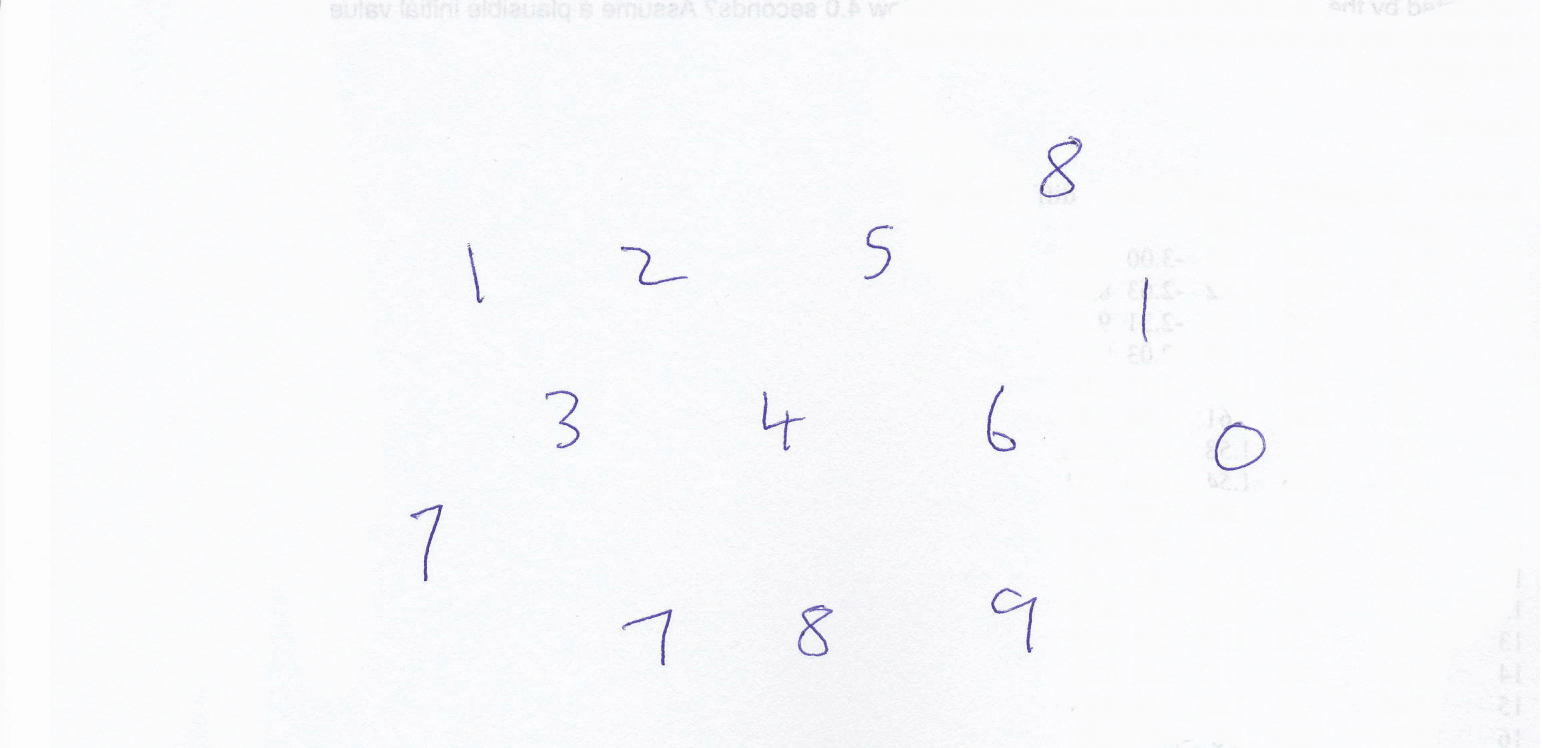 8
1 2 5 1
3 4 6 0
7
7 8 9